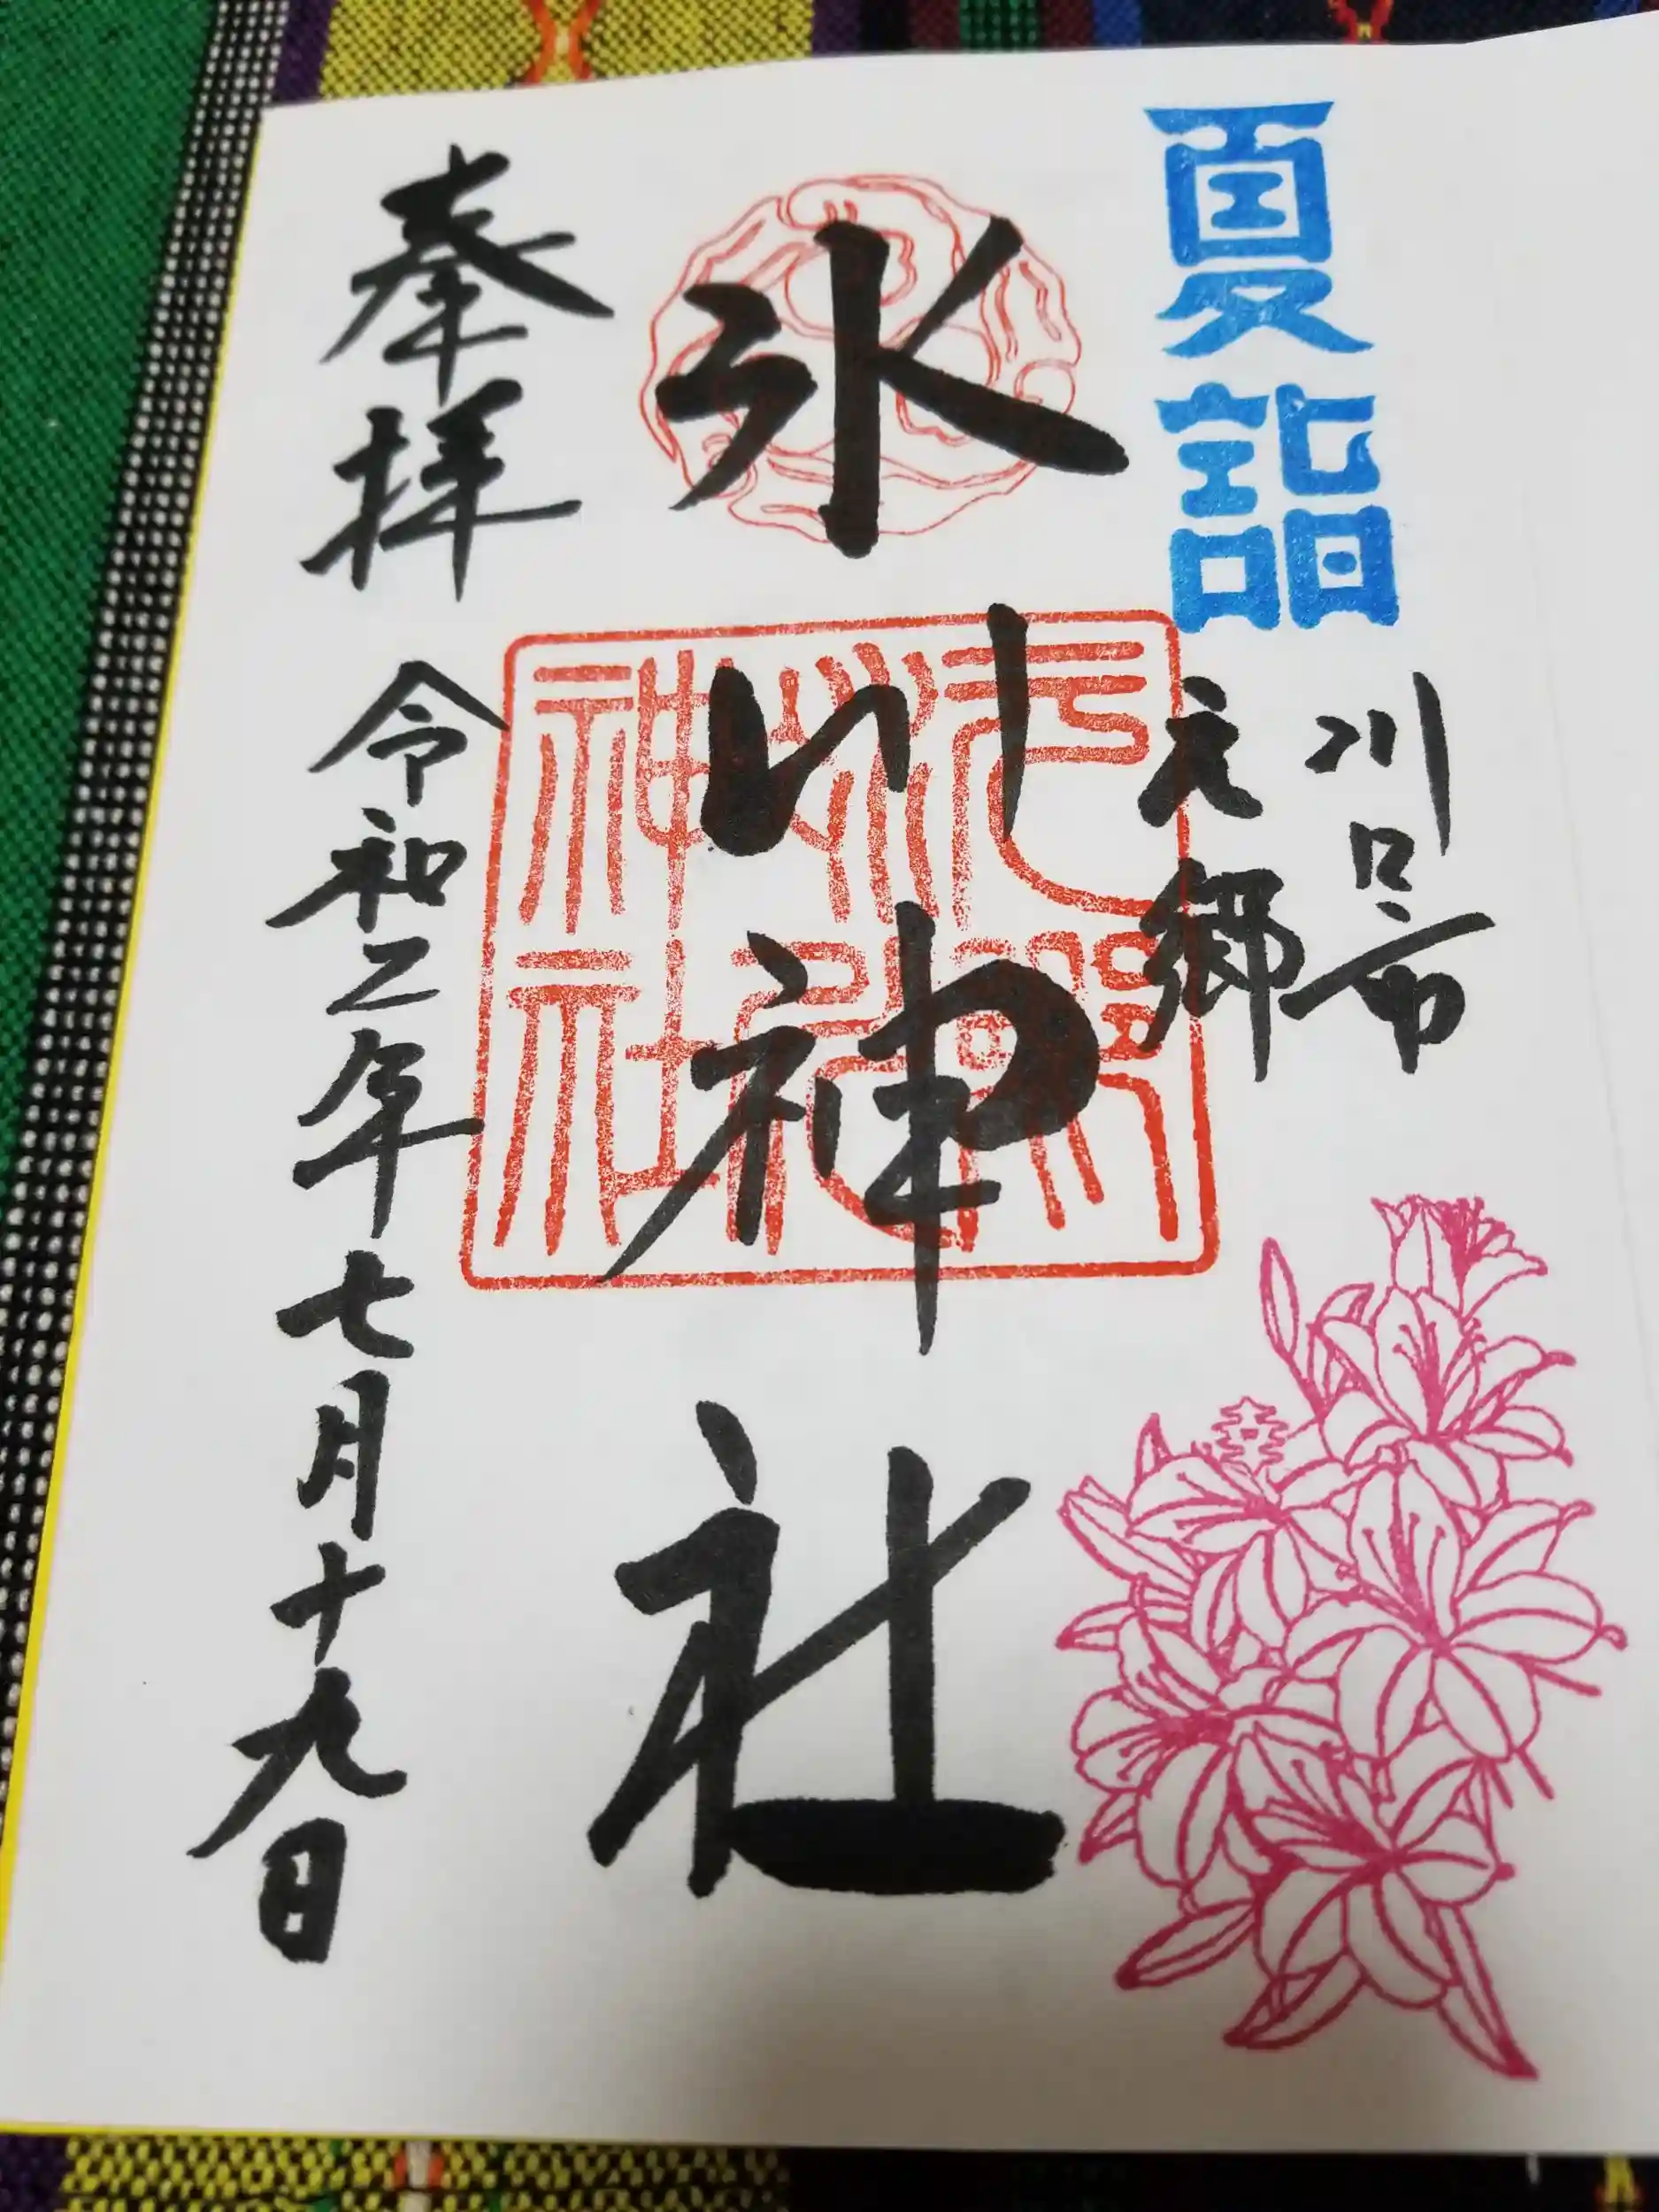 夏詣
川口市
元郷
氷川神社
元郷氷川神社
奉拝
令和二年七月十九日